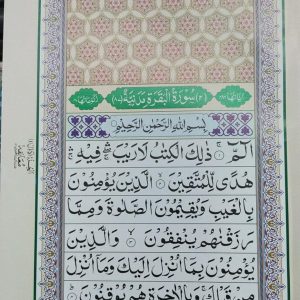 (٢) سُوْرَةُ الْبَقَرَةِ مَدَنِيَّةٌ (٨٧)
بِسْمِ اللهِ الرَّحْمٰنِ الرَّحِيْمِ
الٓمّٓ ۚ ذٰلِكَ الْكِتٰبُ لَا رَيْبَ ۛ فِيْهِ ۛ
هُدًى لِّلْمُتَّقِيْنَ ۙ الَّذِيْنَ يُؤْمِنُوْنَ
بِالْغَيْبِ وَيُقِيْمُوْنَ الصَّلٰوةَ وَمِمَّا
رَزَقْنٰهُمْ يُنْفِقُوْنَ ۙ وَالَّذِيْنَ
يُؤْمِنُوْنَ بِمَاۤ اُنْزِلَ اِلَيْكَ وَمَاۤ اُنْزِلَ
مِنْ قَبْلِكَ ۚ وَبِالْاٰخِرَةِ هُمْ يُوْقِنُوْنَ